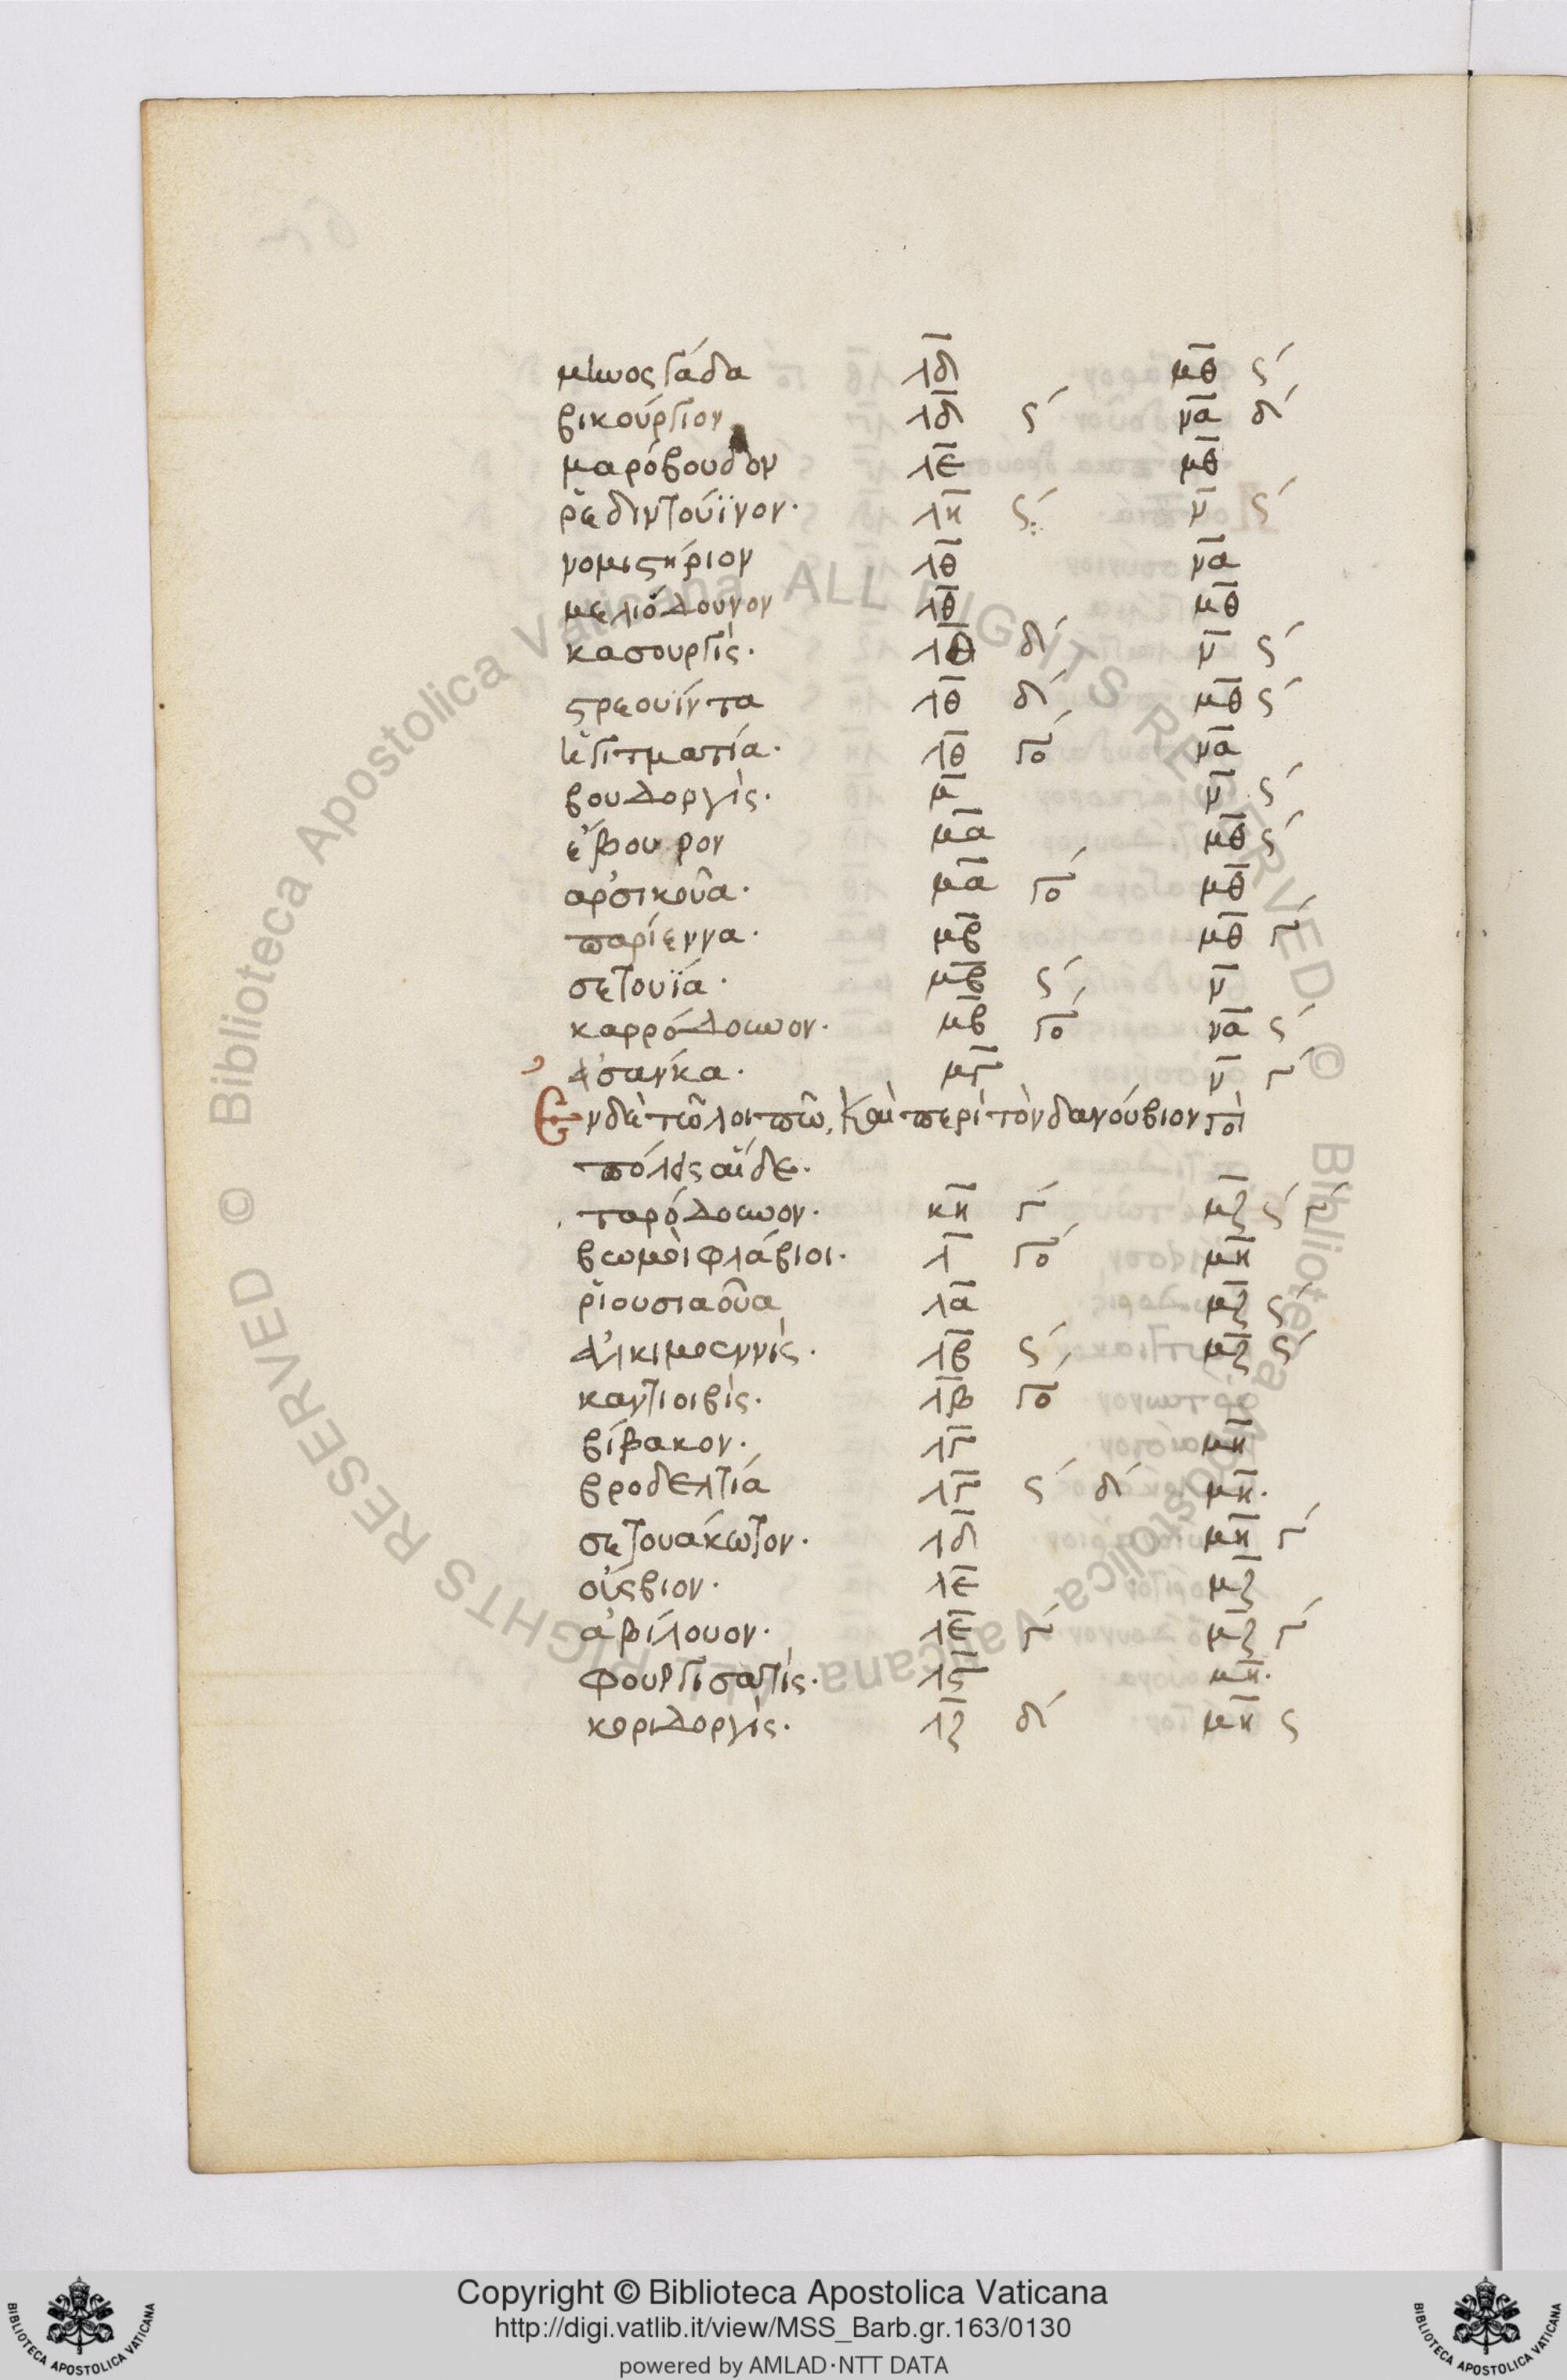 μίνωσγάδα λδ μθ ς´
βικούργιον λδ ς´ να δ´
μαρόβουδον λε μθ
ῥεδιντούϊνον· λη ς´ ν ς´
νομιστήριον λθ να
μελιόδουνον λθ μθ
κασουργίς· λθ δ´ ν ς´
στρεουΐντα λθ δ´ μθ ς´
ἑγιτματία· λθ γο´ να
βουδοργίς· μ ν ς´
ἔβουρον μα μθ ς´
ἀρσικούα· μα γο´ μθ
παρίεννα· μβ μθ γ´
σετουΐα· μβ ς´ ν
καρρόδουνον· μβ γο´ να ς´
ἀσάνκα· μγ ν γ´
Ἐν δὲ τῶ λοιπῶ, καὶ περὶ τὸν δανούβιον πο
πόλεις αἵδε·
ταρόδουνον· κη γ´ μζ ς´ γ´
βωμοὶ φλάβιοι· λ γο´ μη
ῥιουσιαοῦα λα μζ ς´
ἀλκιμοεννίς· λβ ς´ μζ ς´
καντιοιβίς· λβ γο´
βίβακον· λγ μη
βροδελτία λγ ς´ δ´ μη·
σετουάκωτον· λδ μη γ´
οὔσβιον· λε μζ
ἀβίλουον· λε γ´ μζ γ´
φουργισατίς· λς μη·
κοριδοργίς· λζ δ´ μη ς
Copyright © Biblioteca Apostolica Vaticana
http://digi.vatlib.it/view/MSS_Barb.gr.163/0130
powered by AMLAD·NTT DATA
BIBLIOTECA APOSTOLICA VATICANA
BIBLIOTECA APOSTOLICA VATICANA
© Biblioteca Apostolica Vaticana ALL RIGHTS RESERVED
© Biblioteca Apostolica Vaticana ALL RIGHTS RESERVED